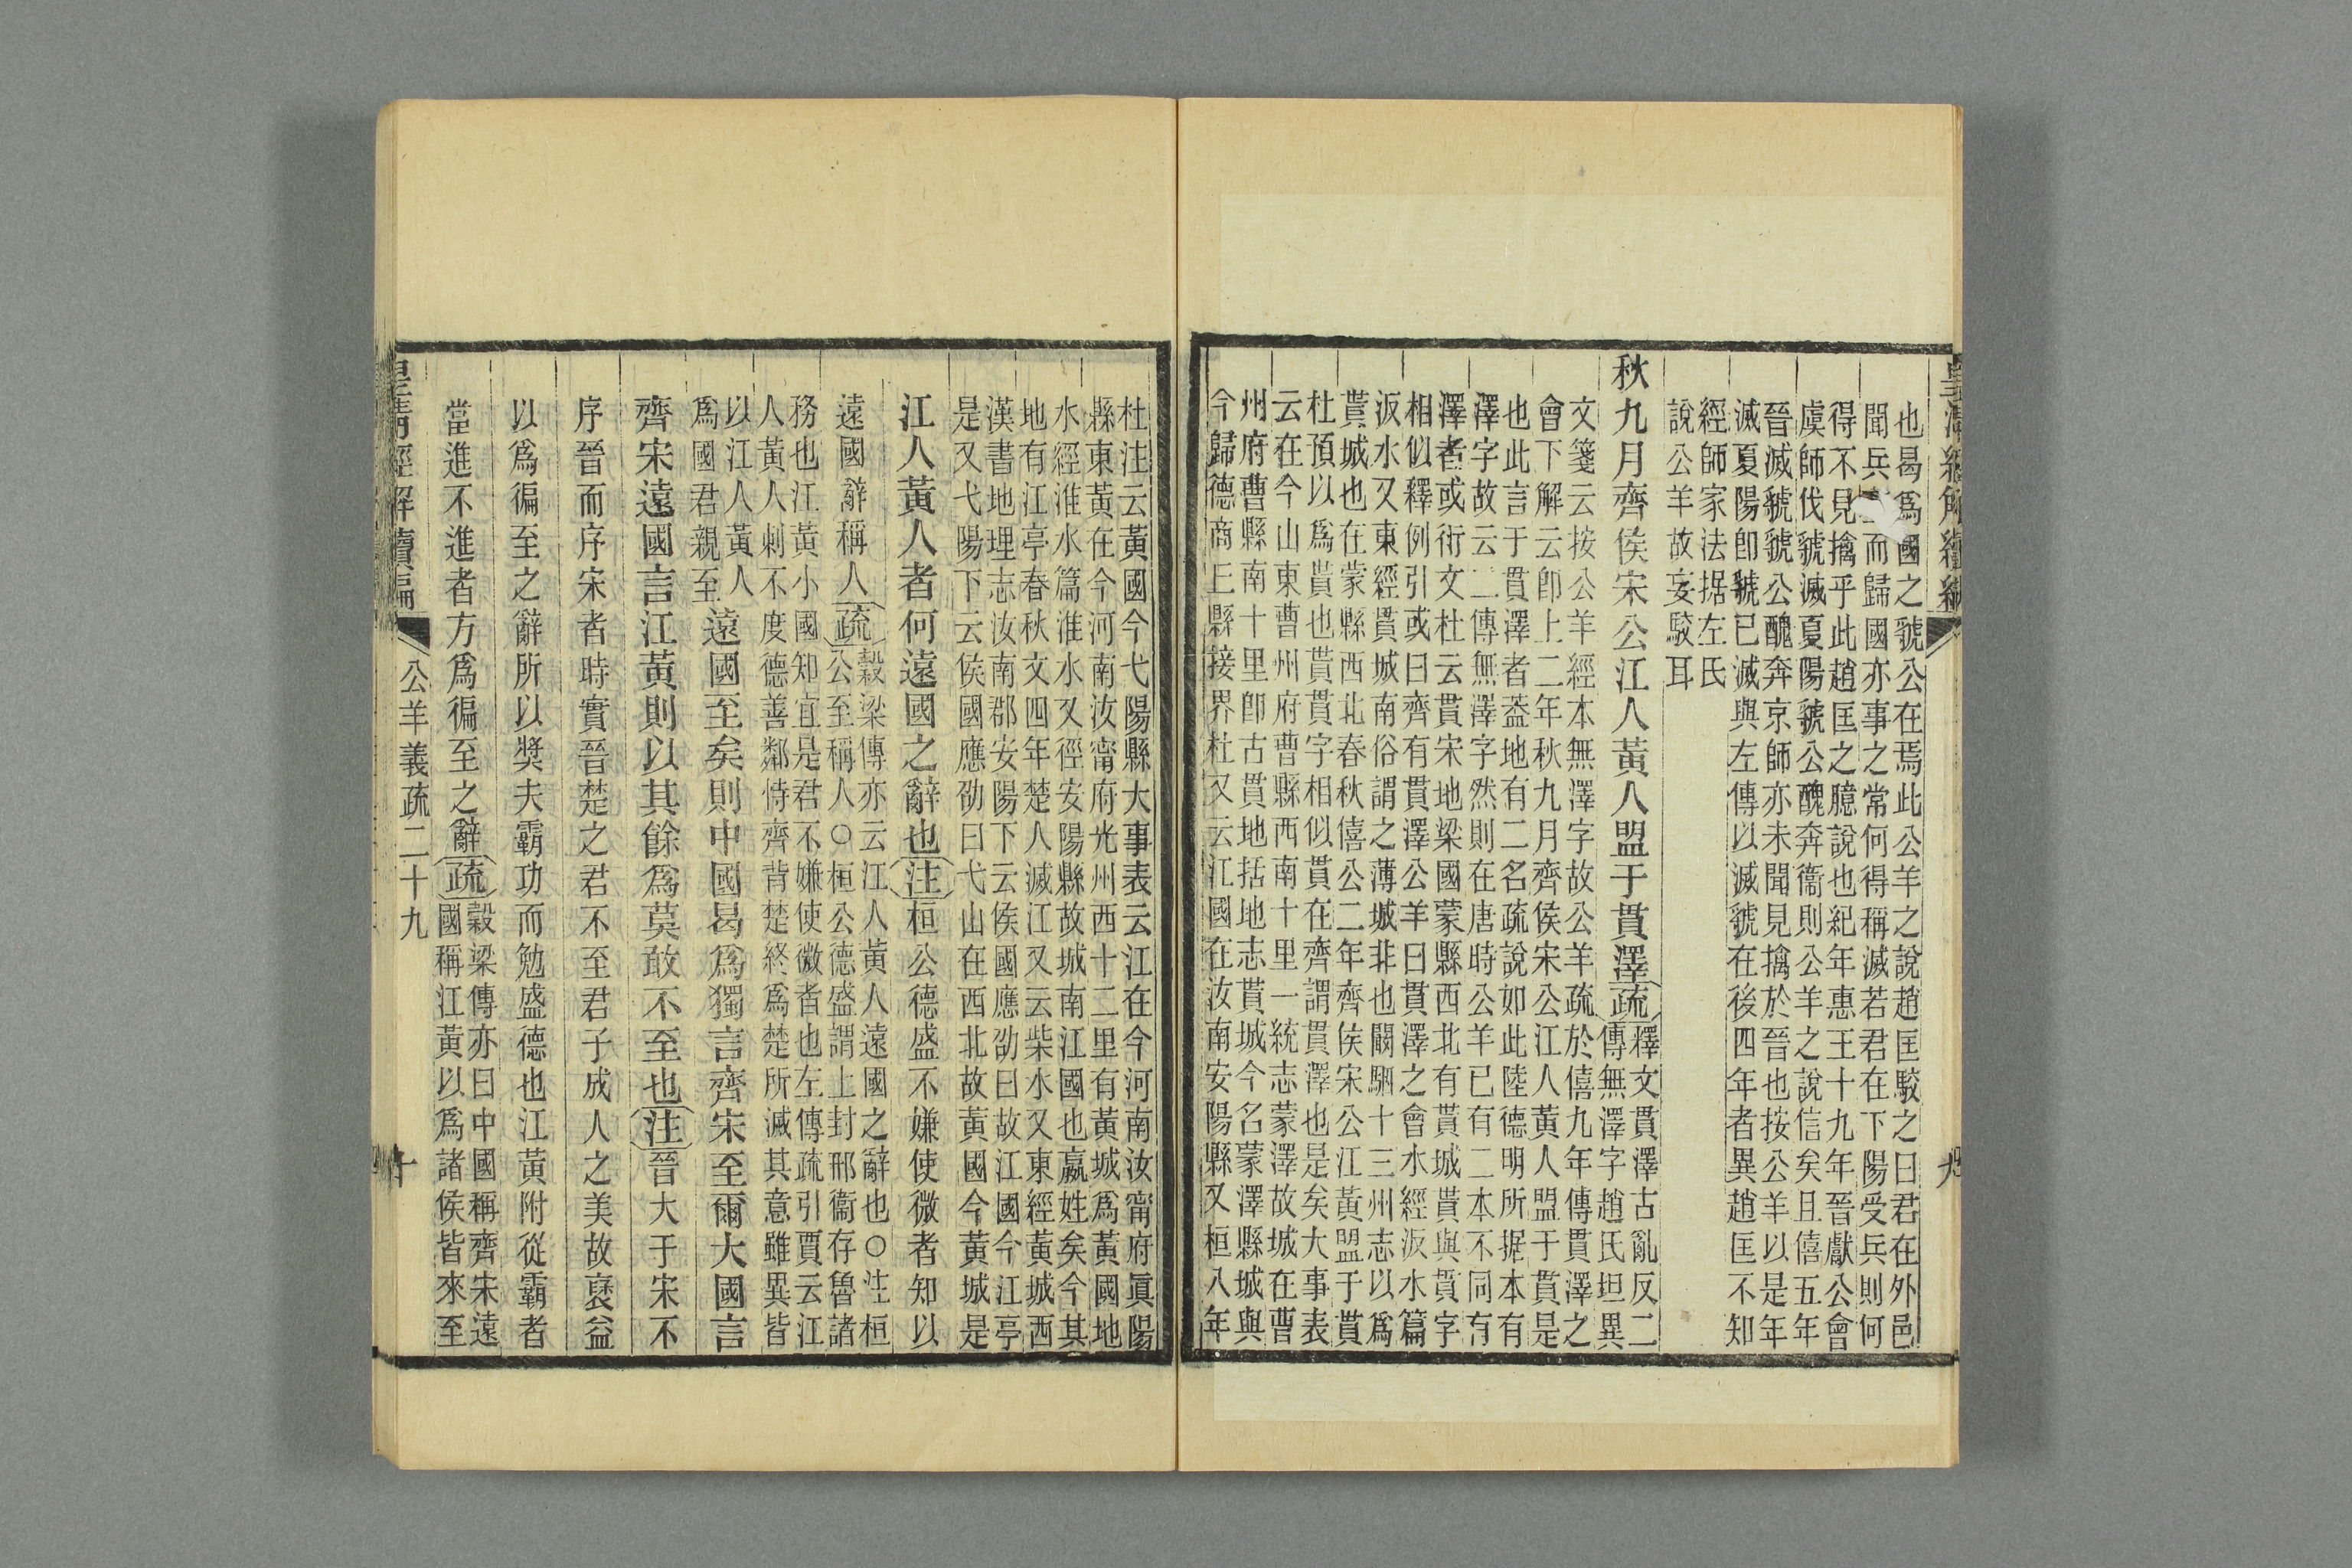 也曷爲國之虢公在焉此公羊之說趙匡駁之曰君在外邑
聞兵而歸國亦事之常何得稱滅若君在下陽受兵則何
得不見擒乎此趙匡之臆說也紀年惠王十九年晉獻公會
虞師伐虢滅夏陽虢公醜奔衞則公羊之說信矣且僖五年
晉滅虢虢公醜奔京師亦未聞見擒於晉也按公羊以是年
滅夏陽卽虢已滅與左傳以滅虢在後四年者異趙匡不知
經師家法据左氏
說公羊故妄駁耳
秋九月齊侯宋公江人黃人盟于貫澤疏
釋文貫澤古亂反二
傳無澤字趙氏坦異
文箋云按公羊經本無澤字故公羊疏於僖九年傳貫澤之
會下解云卽上二年秋九月齊侯宋公江人黃人盟于貫是
也此言于貫澤者葢地有二名疏說如此陸德明所据本有
澤字故云二傳無澤字然則在唐時公羊已有二本不同有
澤者或衍文杜云貫宋地梁國蒙縣西北有貰城貰與貫字
相似釋例引或曰齊有貫澤公羊曰貫澤之會水經汳水篇
汳水又東經貰城南俗謂之薄城非也闞駰十三州志以爲
貰城也在蒙縣西北春秋僖公二年齊侯宋公江黃盟于貰
杜預以爲貰也貰貫字相似貫在齊謂貫澤也是矣大事表
云在今山東曹州府曹縣西南十里一統志蒙澤故城在曹
州府曹縣南十里卽古貫地括地志貰城今名蒙澤縣城與
今歸德商丘縣接界杜又云江國在汝南安陽縣又桓八年
杜注云黃國今弋陽縣大事表云江在今河南汝甯府眞陽
縣東黃在今河南汝甯府光州西十二里有黃城爲黃國地
水經淮水篇淮水又徑安陽縣故城南江國也嬴姓矣今其
地有江亭春秋文四年楚人滅江又云柴水又東經黃城西
漢書地理志汝南郡安陽下云侯國應劭曰故江國今江亭
是又弋陽下云侯國應劭曰弋山在西北故黃國今黃城是
江人黃人者何遠國之辭也注桓公德盛不嫌使微者知以
遠國辭稱人疏
穀梁傳亦云江人黃人遠國之辭也○注桓
公至稱人○桓公德盛謂上封邢衞存魯諸
務也江黃小國知宜是君不嫌使微者也左傳疏引賈云江
人黃人刺不度德善鄰恃齊背楚終爲楚所滅其意雖異皆
以江人黃人
爲國君親至
遠國至矣則中國曷爲獨言齊宋至爾大國言
齊宋遠國言江黃則以其餘爲莫敢不至也注晉大于宋不
序晉而序宋者時實晉楚之君不至君子成人之美故襃益
以爲徧至之辭所以奬夫霸功而勉盛德也江黃附從霸者
當進不進者方爲徧至之辭疏
穀梁傳亦曰中國稱齊宋遠
國稱江黃以爲諸侯皆來至
皇淸經解續編
公羊義疏二十九
十